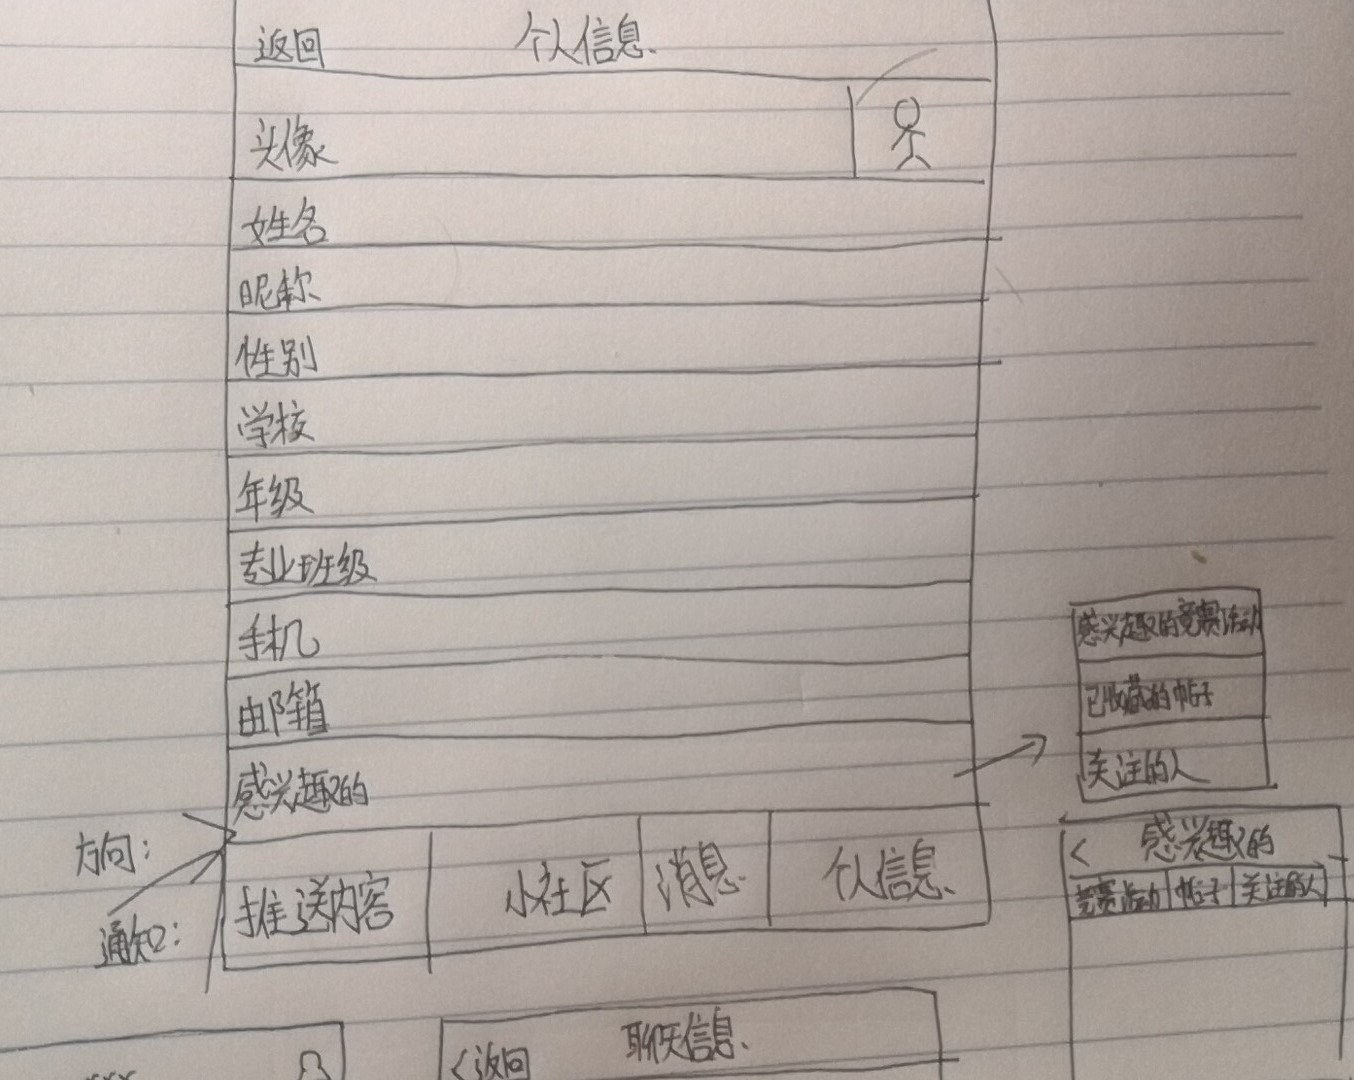 返回 个人信息
头像
姓名
昵称
性别
学校
年级
专业班级
手机
邮箱
感兴趣的
方向：
通知：
推送内容 小社区 消息 个人信息
感兴趣的竞赛活动
已收藏的帖子
关注的人
< 感兴趣的
竞赛活动 帖子 关注的人
<返回 聊天信息
xxx